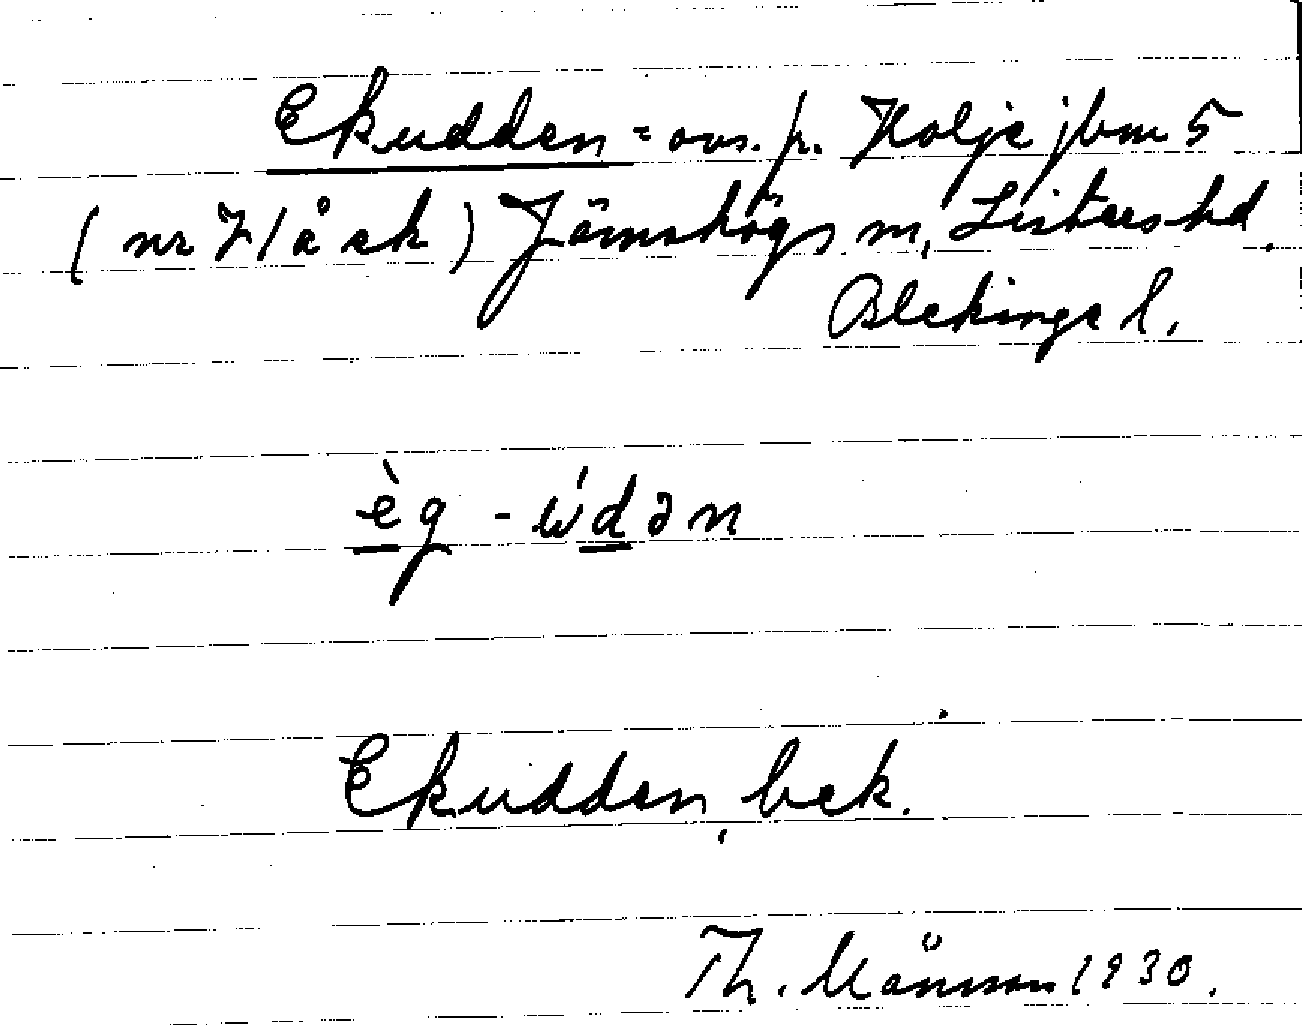 Ekudden = avs. fr. Holje jbm 5
(nr 7 / å ek) Jämshögs sn, Listers hd.
Blekinge l.
èg - údən
Ekudden, bek.
Th. Månsson 1930.